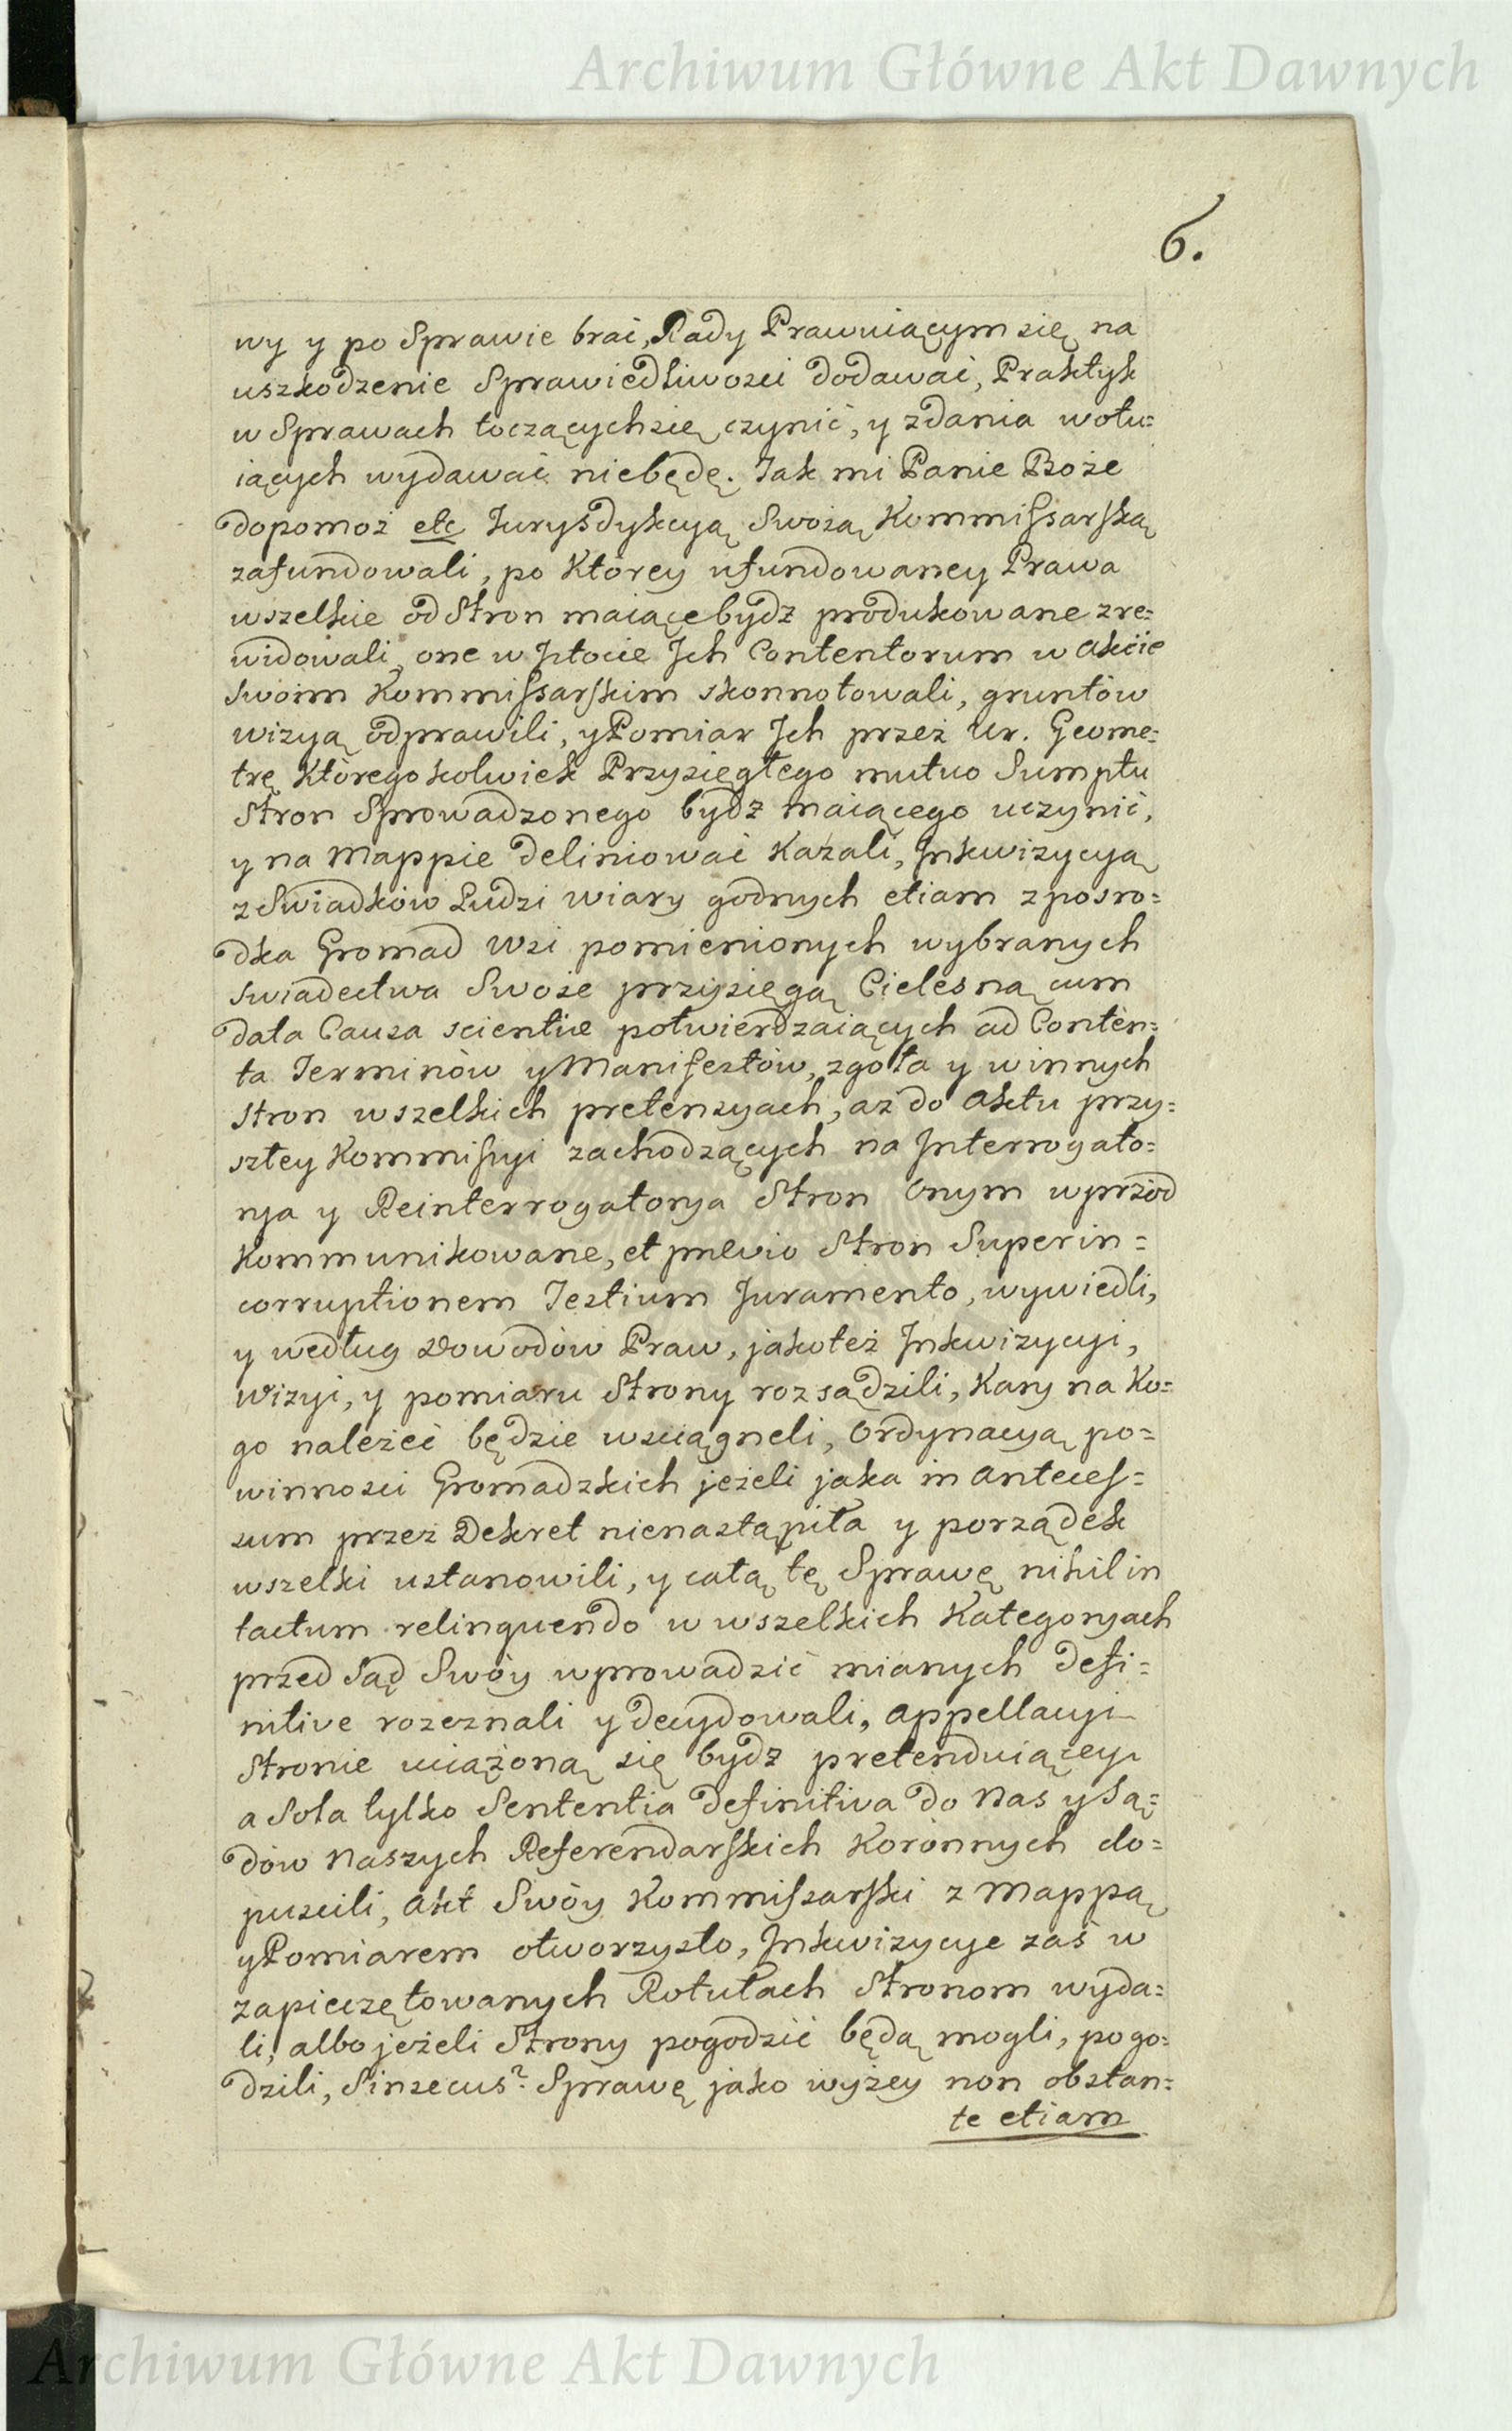 Archiwum Główne Akt Dawnych
6.
wy y po Sprawie brać, Rady Prawuiącym się na
uszkodzenie Sprawiedliwości dodawać, Praktyk
w Sprawach toczących się czynić, y zdania wotu=
iących wydawać niebędę. Tak mi Panie Boże
dopomoż etc Jurysdykcyą Swoią Kommissarską
zafundowali, po Którey ufundowaney Prawa
wszelkie od Stron maiące bydz produkowane zre=
widowali, one w Istocie Ich Contentorum w Akcie
Swoim Kommissarskim skonnotowali, gruntów
wizyą odprawili, y Pomiar Ich przez Ur. Geome=
trę Któregokolwiek Przysięgłego mutuo Sumptu
Stron Sprowadzonego bydz maiącego uczynić,
y na Mappie deliniować Kazali, Inkwizycyą
z Swiadków Ludzi wiary godnych etiam z posro=
dka Gromad Wsi pomienionych wybranych
swiadectwa Swoie przysięgą Cielesną cum
data Causa scientiæ potwierdzaiących ad Conten=
ta Terminów y Manifestów, zgoła y w innych
Stron wszelkich pretensyach, aż do Aktu przy=
szłey Kommissyi zachodzących na Interrogato=
rya y Reinterrogatorya Stron Onym wprzód
Kommunikowane, et prævio Stron Super in=
corruptionem Testium Juramento, wywiedli,
y według Dowodów Praw, jakoteż Inkwizycyi,
Wizyi, y pomiaru Strony rozsądzili, Kary na Ko=
go należeć będzie wsciągneli, Ordynacyą po=
winnosci Gromadzkich jeżeli jaka in Anteces=
sum przez Dekret nienastąpiła y porządek
wszelki ustanowili, y całą tę Sprawę nihil in
tactum relinquendo w wszelkich Kategoryach
przed Sąd Swóy wprowadzić mianych defi=
nitive rozeznali y decydowali, Appellacyi
Stronie uciążoną się bydz pretenduiącey
a Sola tylko Sententia definitiva do Nas y Są=
dów Naszych Referendarskich Koronnych do=
puscili, Akt Swóy Kommissarski z Mappą
y Pomiarem otworzysto, Inkwizycye zaś w
zapieczętowanych Rotułach Stronom wyda=
li, albo jeżeli Strony pogodzić będą mogli, pogo=
dzili, Sin secus? Sprawę jako wyżey non obstan=
te etiam
Archiwum Główne Akt Dawnych